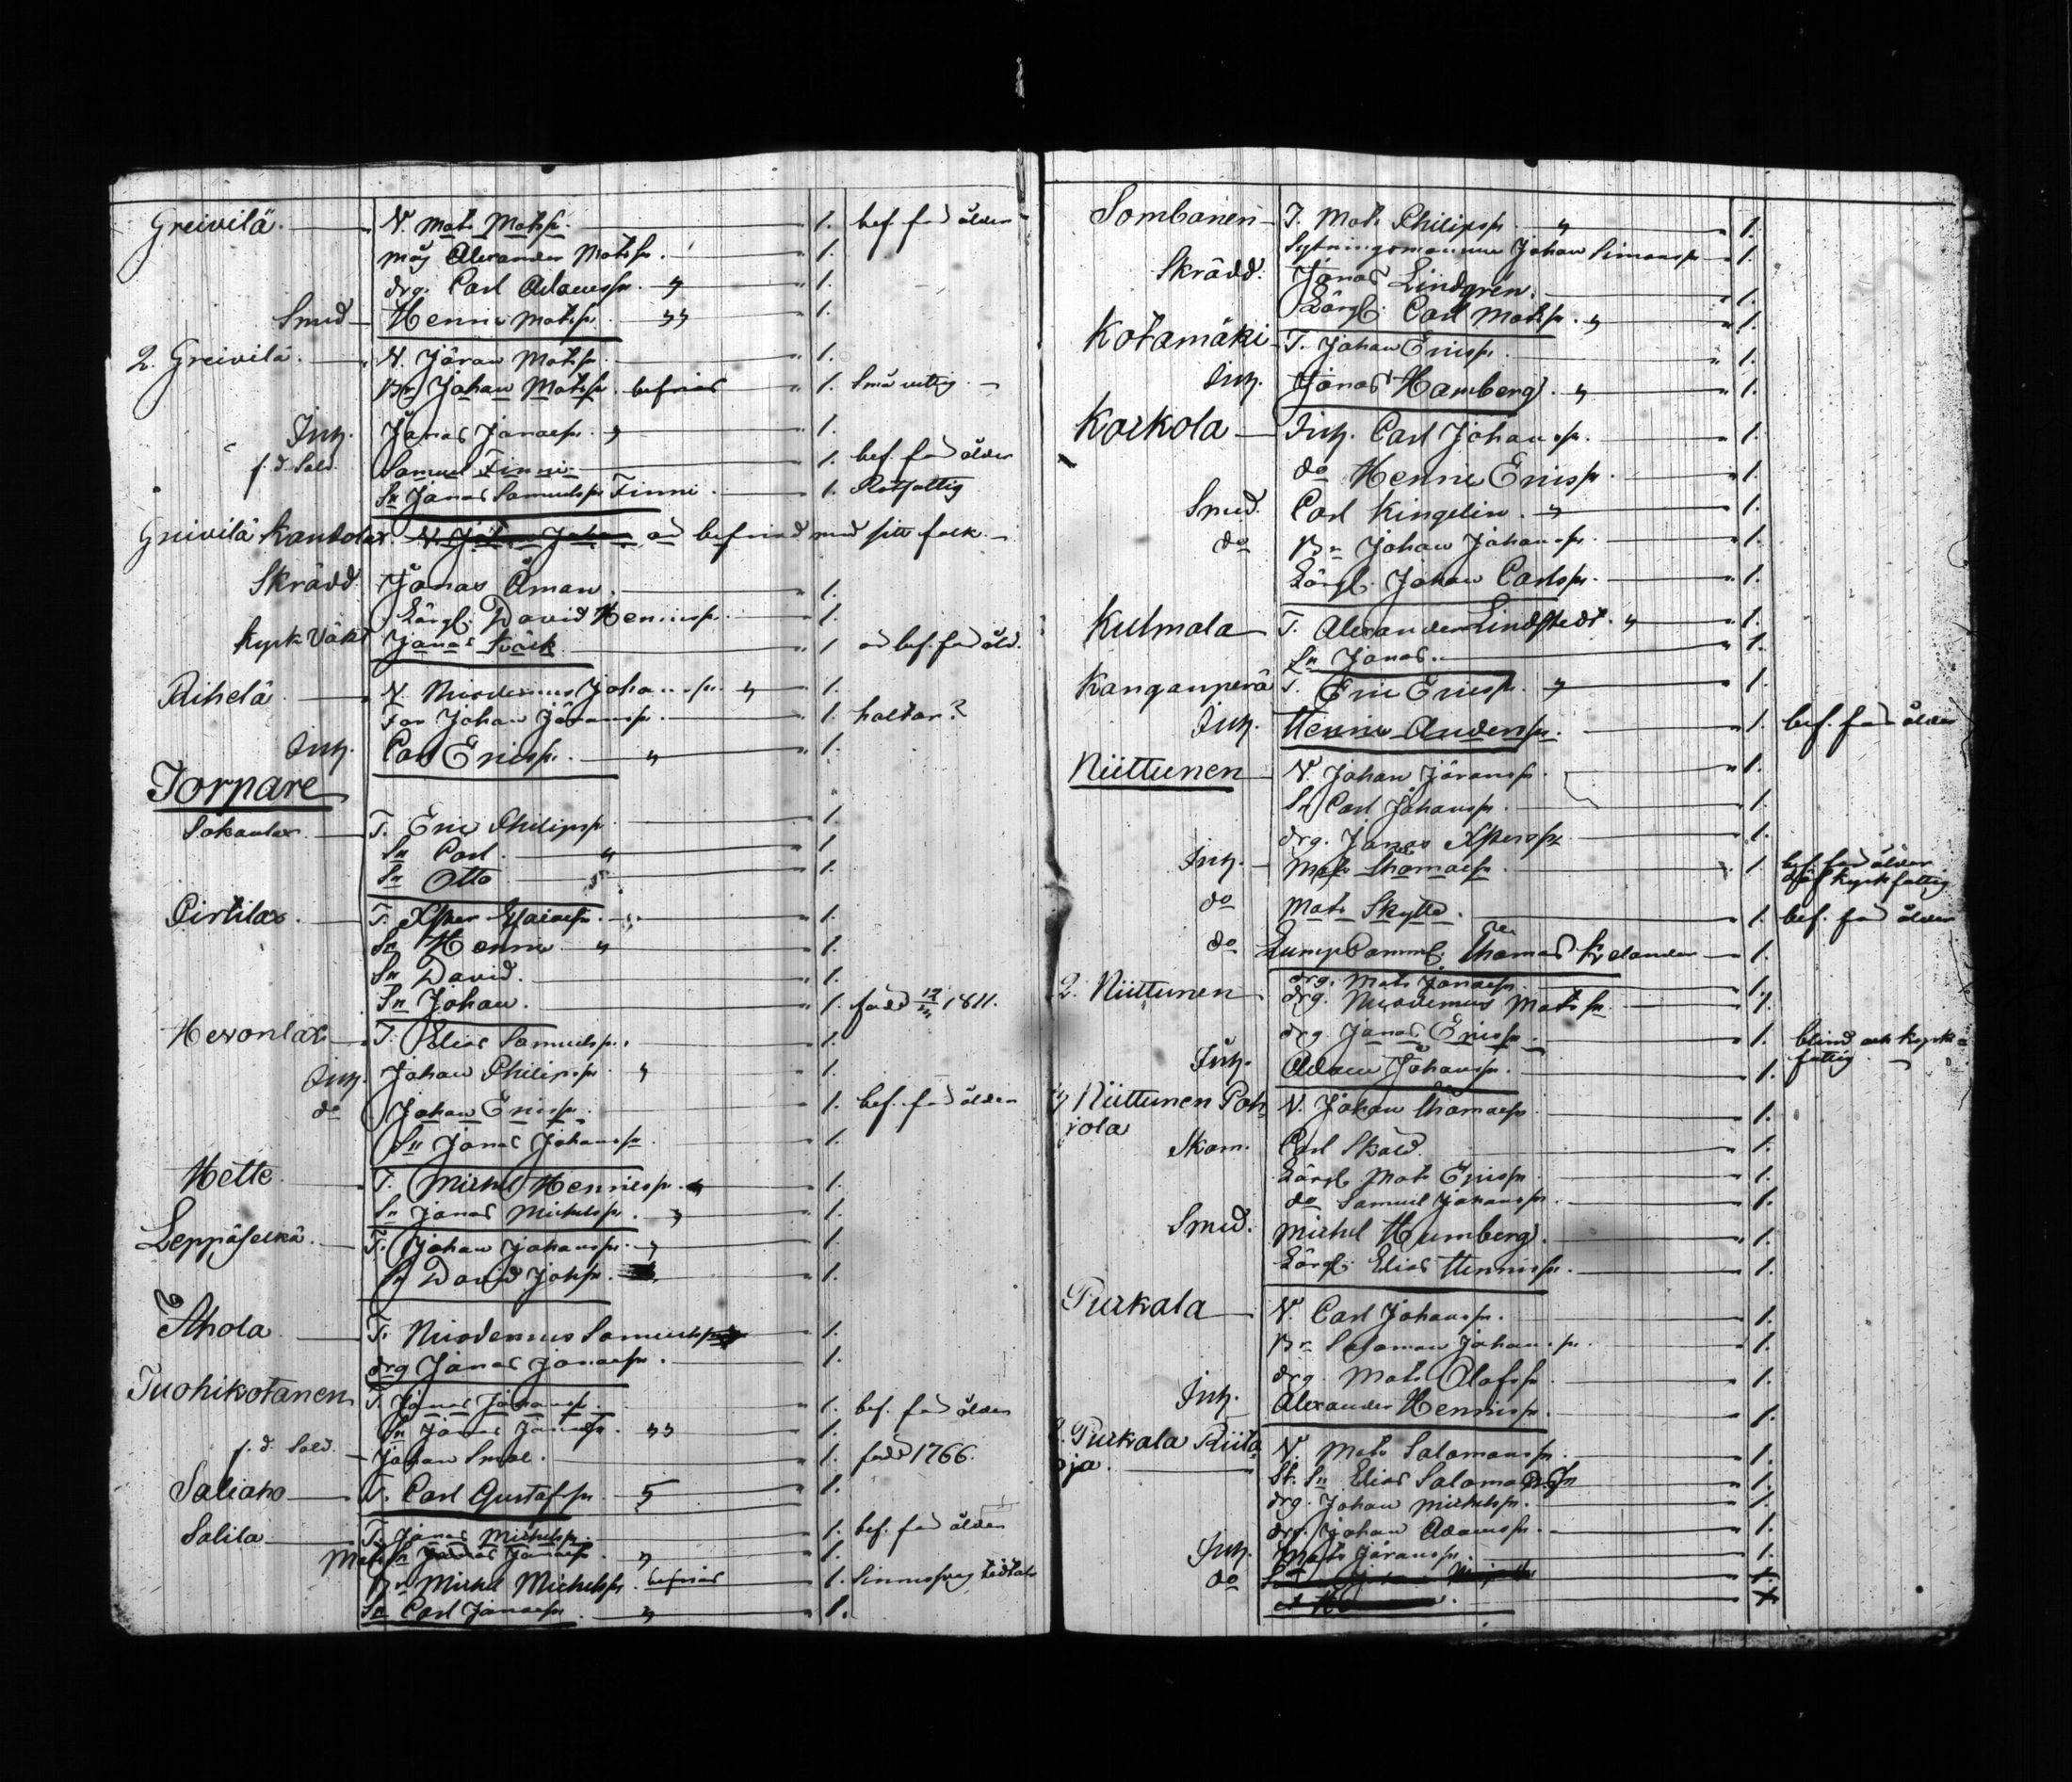 Greivilä. N. Mats Matss. 1. bef. för ålder
måg Alexander Matss. 1.
drg. Carl Adamss. 1.
Smed Henric Matss. 1.
2. Greivilä. N. Jöran Matss. 1.
Br Johan Matss. befrias 1. Små vettig.
Inh. Jonas Jonass. 1.
f.d. Sold. Samuel Finni 1. bef. för ålder
Sn Jonas Samuelss Finni. 1. Rotfattig
Greivilä Kantola N. Johan Johan är befriad med sitt folk.
Skrädd. Jonas Åman. 1.
Lärgl. David Henricss. 1.
Kyrk Väkt Jonas 1 är bef. för åld.
Rihelä N. Nicodemus Johanss. 1.
Far Johan Jöranss. 1. haltar?
Inh. Carl Ericss. 1.
Torpare
Sokaulax. T. Eric Philipss 1
Sn Carl. 1
Sn Otto 1
Pirtilax. T. Xster Esaiass. 1.
Sn Henric 1.
Sn David. 1.
Sn Johan. 1. född 12/ 1811.
Hevonlax T. Elias Samuelss. 1
Inh. Johan Philipss. 1
do Johan Ericss. 1. bef. för ålder
Sn Jonas Johanss 1.
Hette. T. Michel Henricss. 1.
Sn Jonas Michelss. 1.
Leppäselkä. T. Johan Johanss. 1
David Johss. 1.
Ahola T. Nicodemus Samuelss 1.
drg Jonas Jonass. 1.
Tuohikotanen T. Jonas Johanss. 1. bef. för ålder
Sn Jonas Jonass. 1.
f.d. Sold. Johan Smal. 1. född 1766.
Saliaho T. Carl Gustafss. 1.
Salila T. Jonas Michelss. 1. bef. för ålder
Mats Sn Jonas Jonass. 1.
Br Michel Michelss. befrias 1. Sinnesswag
Sn Carl Jonass 1.
Sombanen T. Mats Philipss 1.
Sytningsmannen Johan Simonss 1.
Skrädd. Jonas Lindgrén. 1.
Lärgl. Carl Matss. 1.
Kotamäki T. Johan Ericss. 1.
Inh. Jonas Hamberg. 1.
Korkola Inh. Carl Johanss. 1.
do Henric Ericss. 1.
Smed. Carl Kingelin. 1.
do Br Johan Johanss. 1.
Lärgl. Johan Carlss. 1.
Kulmala T. Alexander Lindstedt. 1.
Sn Jonas. 1.
Kanganperä T. Eric Ericss. 1.
Inh. Henric Anderss. 1. bef. för ålder
Niittunen N. Johan Jöranss. 1.
Sn Carl Johanss. 1.
drg. Jonas Xsterss 1.
Inh. Mats Thomass. 1. bef. för ålder
kyrkfattig
do Mats Skytte. 1. bef. för ålder
do Lumpsamml. Thomas 1.
2. Niittunen drg. Mats Jonass. 1.
drg. Nicodemus Matss 1.
drg. Jonas Ericss. 1. blind och kyrk=
fattig
Inh. Adam Johanss. 1.
Niittunen Poh
jola N. Johan Thomass 1.
Skom. Carl Sköld. 1.
Lärgl Mats Ericss 1.
do Samuel Johanss. 1.
Smed. Michel Humberg. 1.
Lärgl. Elias Henricss. 1.
Purkala N. Carl Johanss. 1.
Br Salomon Johanss. 1.
drg. Mats Olofss. 1.
Inh. Alexander Henricss. 1.
2. Purkala Riita
oja. N. Mats Salomonss. 1.
St. Sn Elias Salomonss 1.
drg. Johan Michelss. 1.
drg. Johan Adamss. 1.
Inh. Mats Jöranss. 1.
do